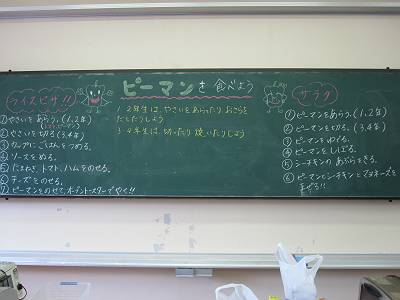 ピーマンを食べよう
1.2年生は、やさいをあらったり、おさらを
だしたりしよう
3.4年生は、切ったり焼いたりしよう
ライスピザ!!
①やさいをあらう。(1.2年)
②やさいを切る。(3.4年)
③カップにごはんをつめる。
④ソースをぬる。
⑤たまねぎ、トマト、ハムをのせる。
⑥チーズをのせる。
⑦ピーマンをのせて、オーブントースターでやく!!
サラダ
①ピーマンをあらう。(1.2年)
②ピーマンを切る。(3.4年)
③ピーマンをゆでる。
④ピーマンをしぼる。
⑤シーチキンのあぶらをきる。
⑥ピーマンとシーチキンとマヨネーズを
まぜる!!